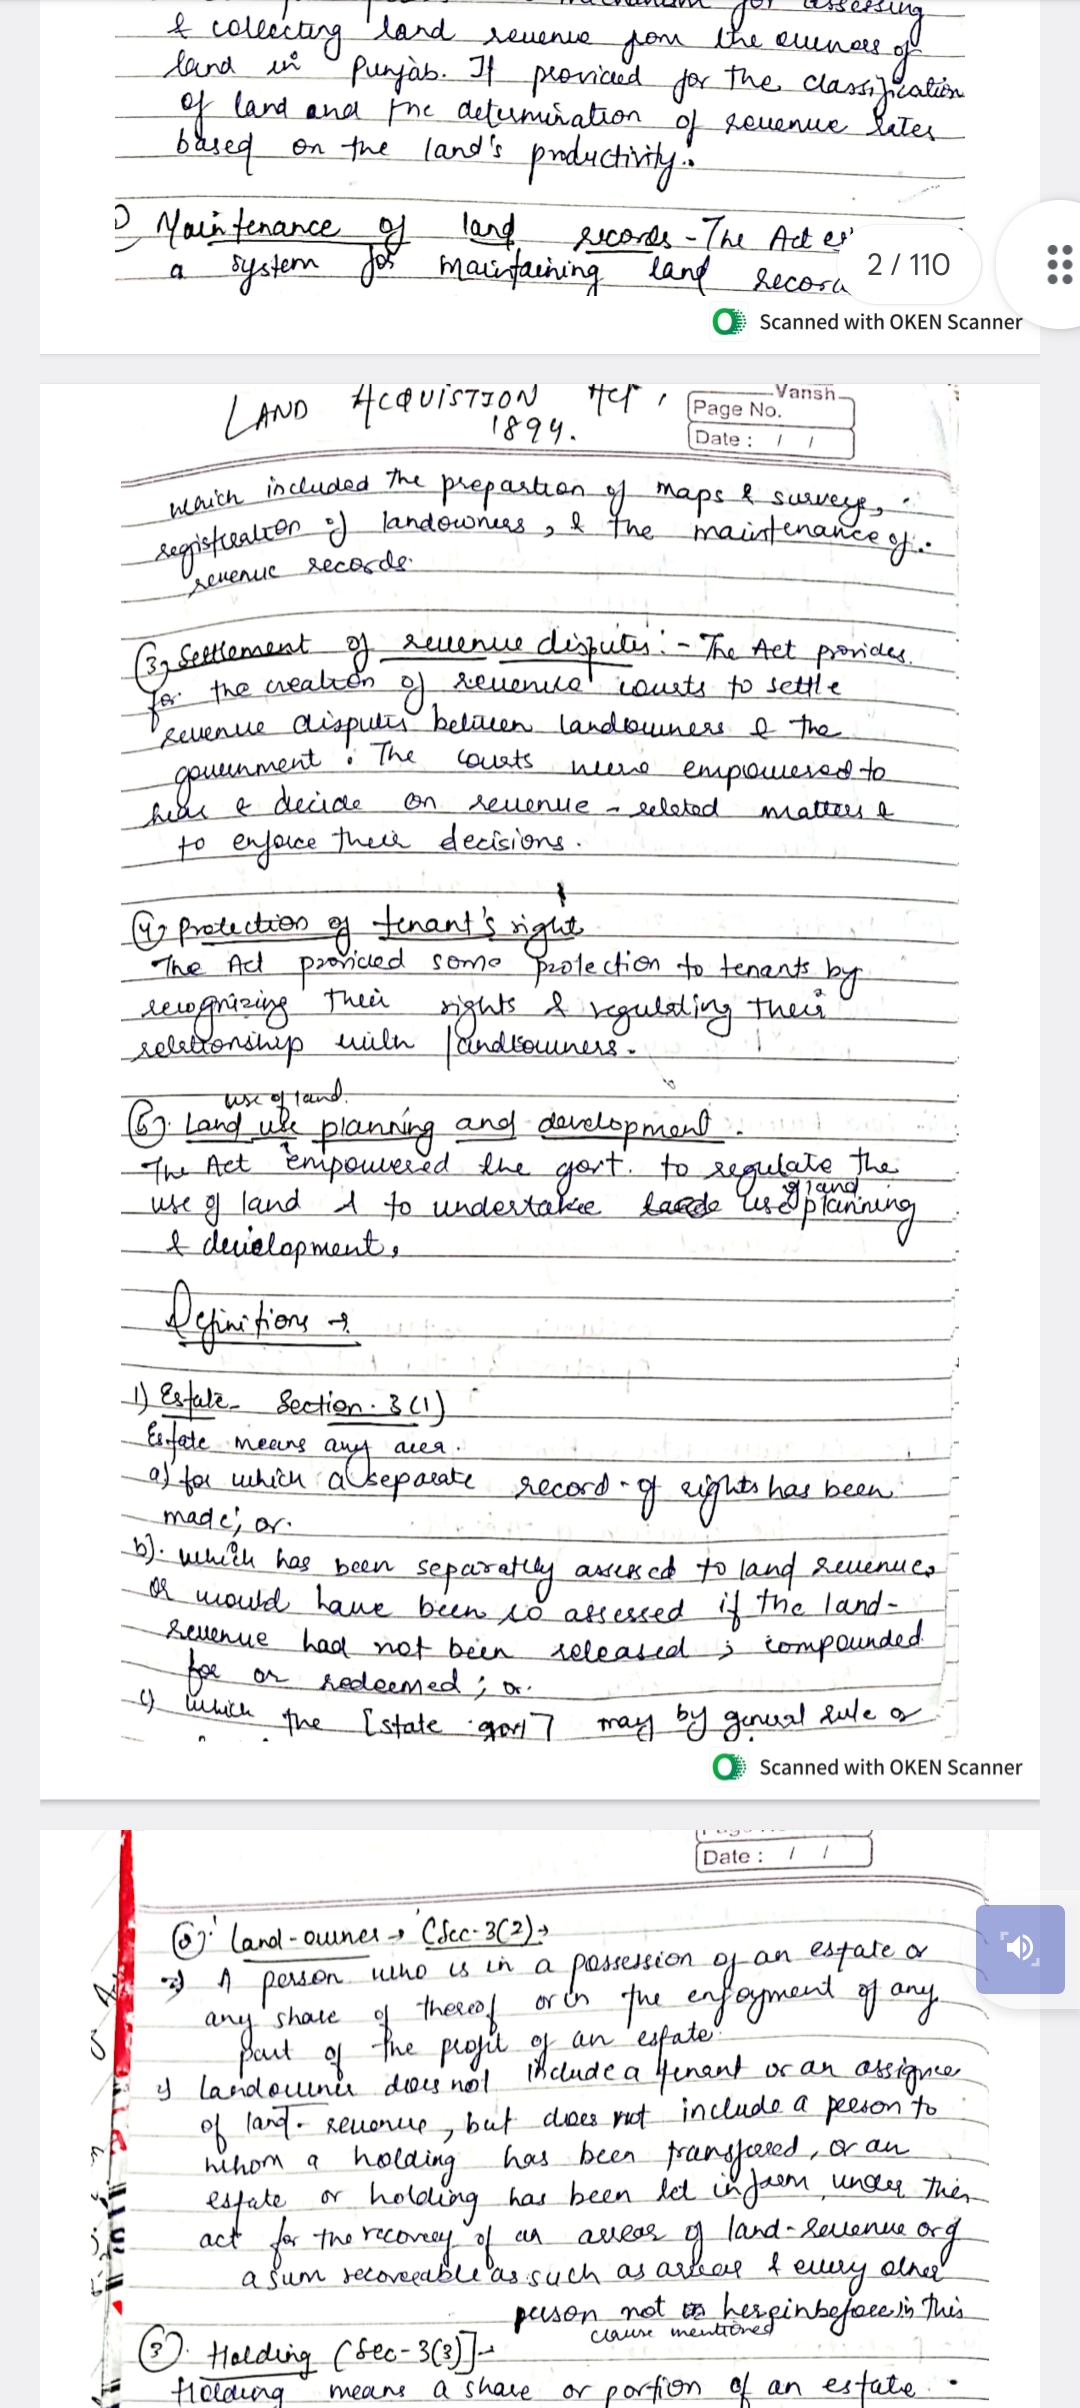 mechanism for assessing
& collecting land revenue from the owners of
land in Punjab. It provided for the classification
of land and the determination of revenue rates
based on the land's productivity.
Maintenance of land records - The Act es
a system for maintaining land record
2 / 110
Scanned with OKEN Scanner
LAND ACQUISTION ACT,
1894.
Vansh
Page No.
Date : / /
which included the prepartion of maps & surveys,
registreation of landowners, & the maintenance of
revenue records.
(3) Settlement of revenue disputes :- The Act provides
for the creation of revenue courts to settle
revenue disputes between landowners & the
government. The courts were empowered to
hear & decide on revenue - releted matters &
to enforce their decisions.
(4) Protection of tenant's right
The Act provided some protection to tenants by
recognizing their rights & regulating their
relationship with landowners.
use of land.
(5). Land use planning and development.
The Act empowered the govt. to regulate the
of land
use of land & to undertake use planning
& development.
Definitions →
1) Estate - Section. 3 (1)
Estate means any area.
a) for which a separate record-of rights has been
made; or.
b). which has been separatly assessed to land revenue,
or would have been so assessed if the land-
revenue had not been released ; compounded
for or redeemed ; or.
c) which the [state govt] may by general rule or
Scanned with OKEN Scanner
Date : / /
Land-owner → (Sec-3(2)→
A person who is in a possession of an estate or
any share of thereof or in the enjoyment of any
part of the profit of an estate.
Landowner does not include a tenant or an assignee
of land-revenue, but does not include a person to
whom a holding has been transfered, or an
estate or holding has been let in farm under this
act for the recovery of an arrear of land-revenue or of
a sum recoverable as such as arrear & every other
person not hereinbefore in this
clause mentioned
(3). Holding (Sec-3(3)]→
Holding means a share or portion of an estate.